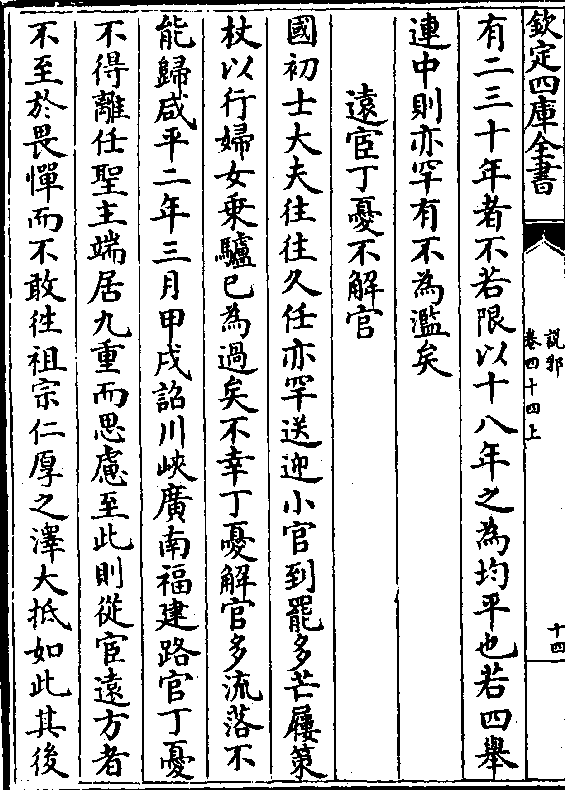 欽定四庫全書
說郛
卷四十四上
十四
有二三十年者不若限以十八年之為均平也若四舉
連中則亦罕有不為濫矣
遠宦丁憂不解官
國初士大夫往往久任亦罕送迎小官到罷多芒屩策
杖以行婦女乗驢已為過矣不幸丁憂解官多流落不
能歸咸平二年三月甲戌詔川峽廣南福建路官丁憂
不得離任聖主端居九重而思慮至此則從宦遠方者
不至於畏憚而不敢徃祖宗仁厚之澤大抵如此其後